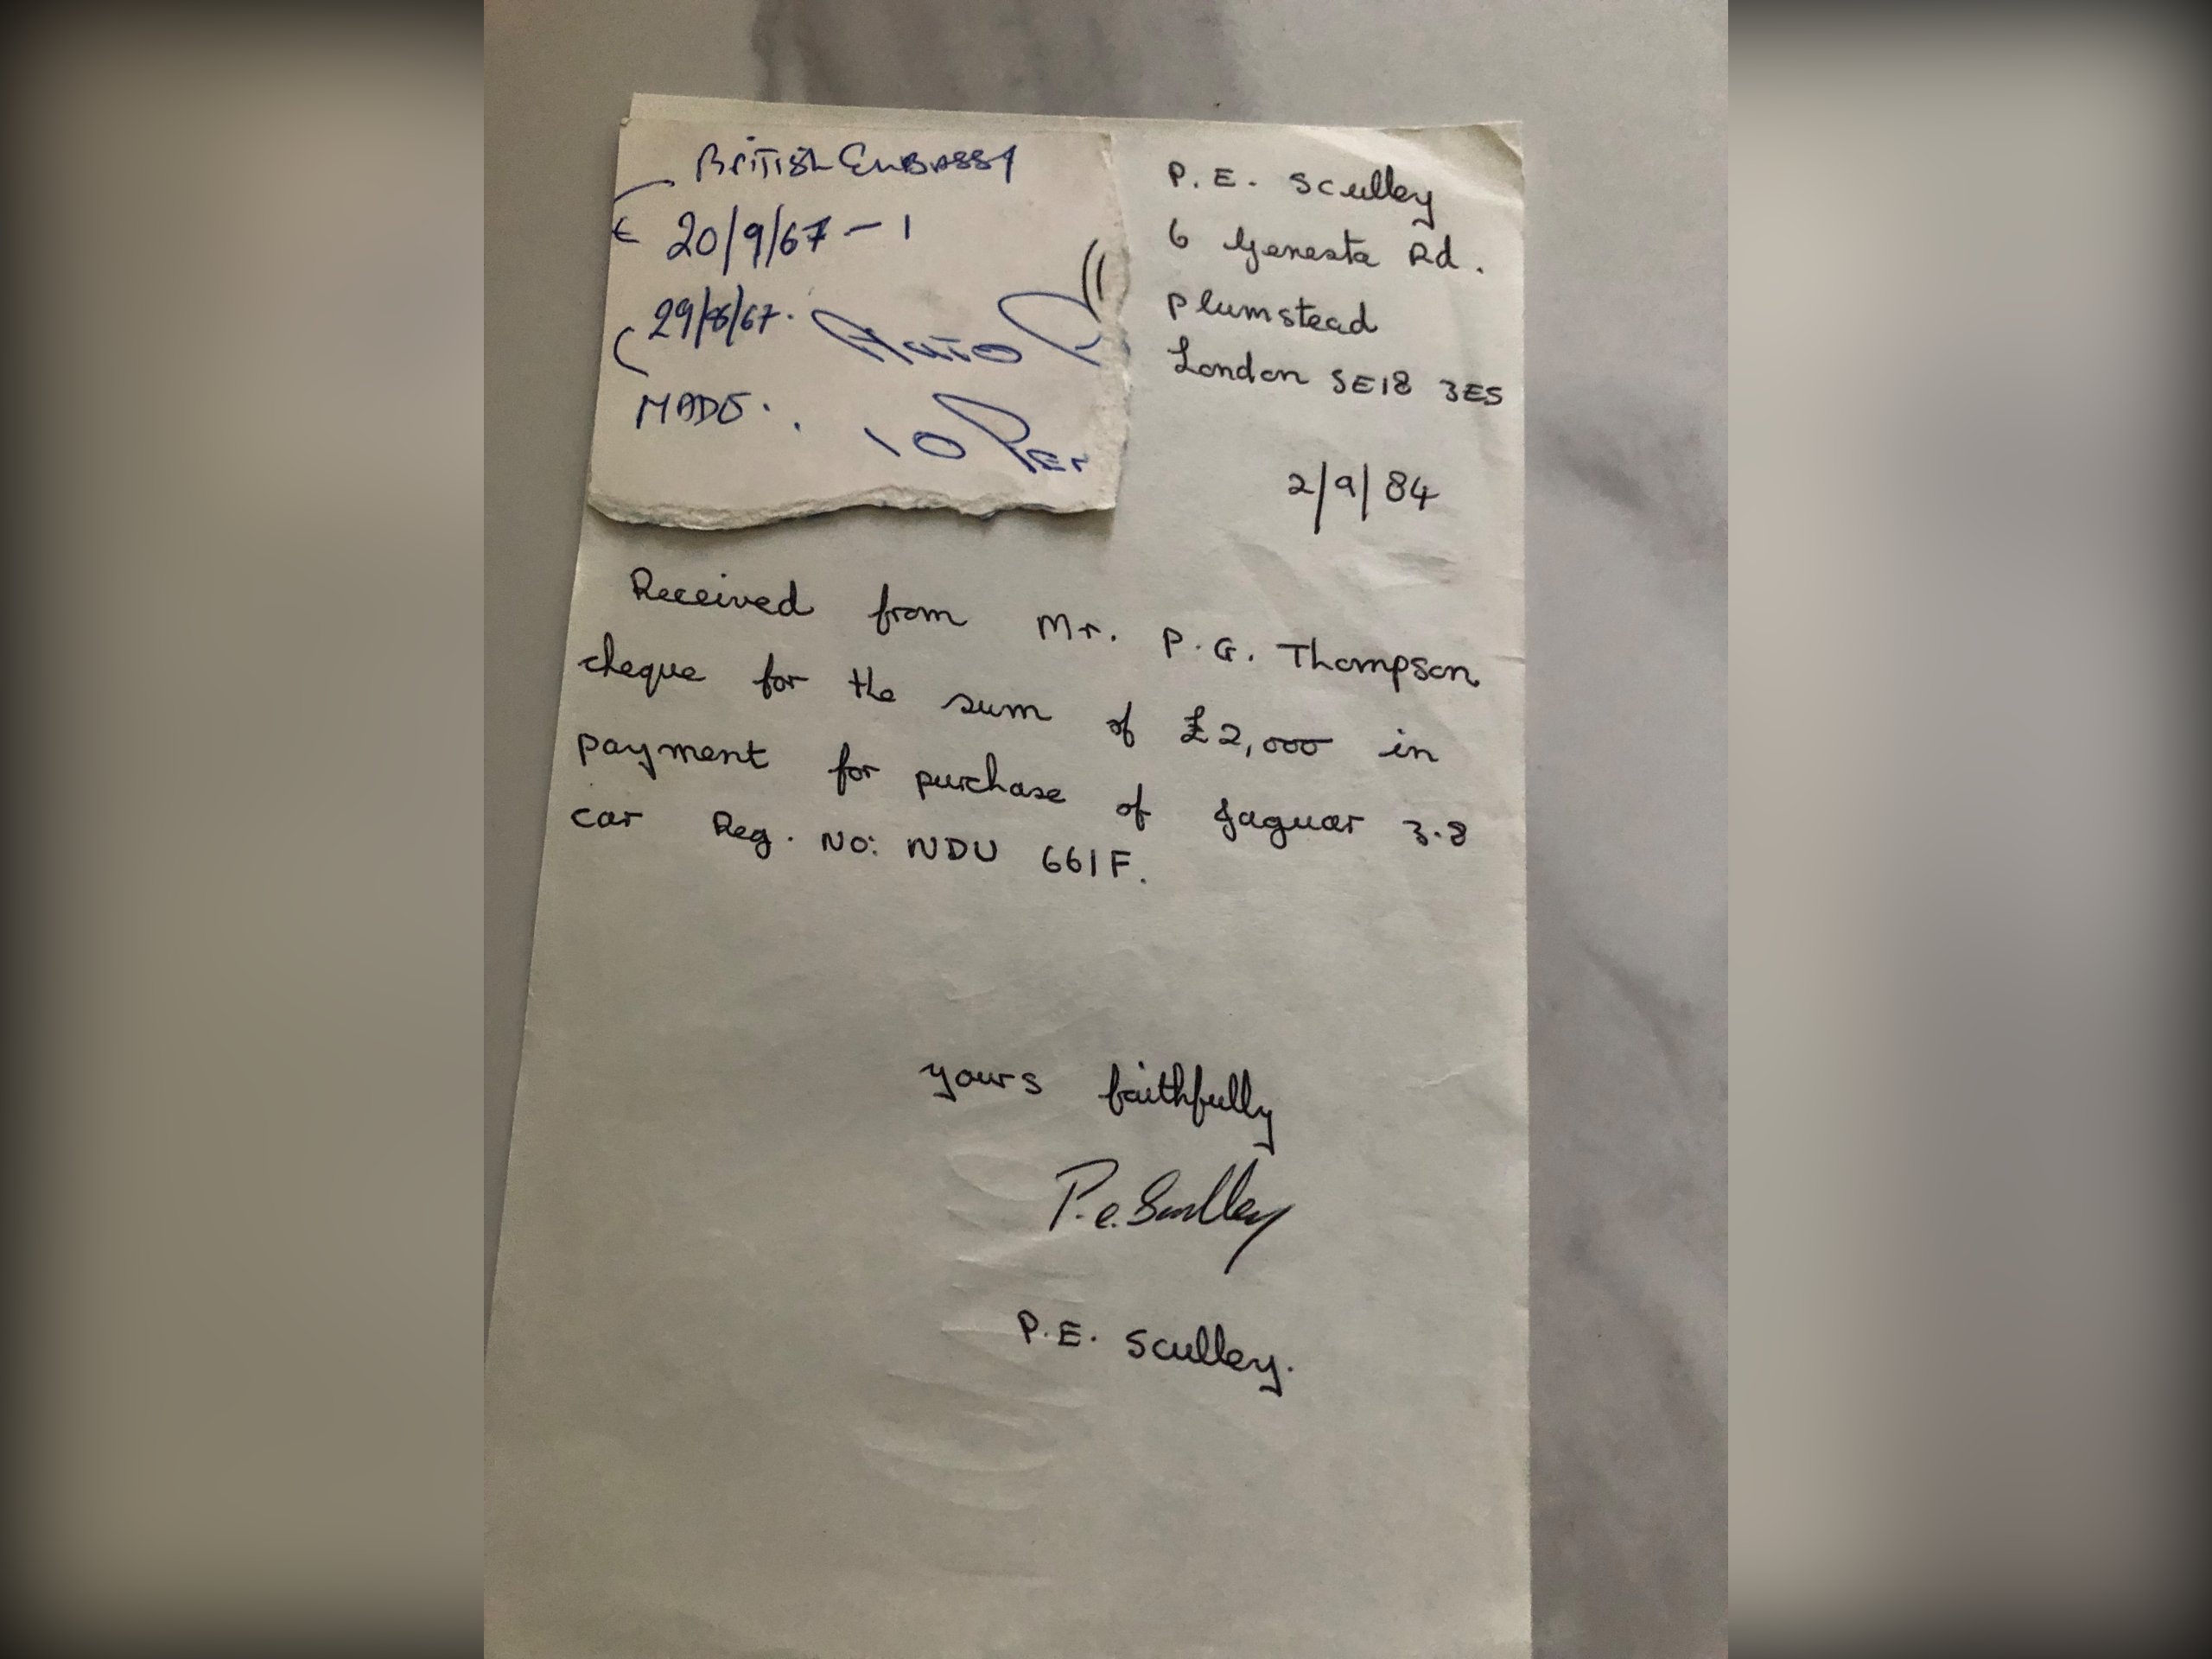 BRITISH EMBASSY
20/9/67 - 1
29/8/67.
MADE.
10
P. E. Sculley
6 Genesta Rd.
Plumstead
London SE18 3ES
2/9/84
Received from Mr. P.G. Thompson
cheque for the sum of £2,000 in
payment for purchase of Jaguar 3.8
car Reg. No: NDU 661F.
yours faithfully
P.e. Sculley
P.E. Sculley.